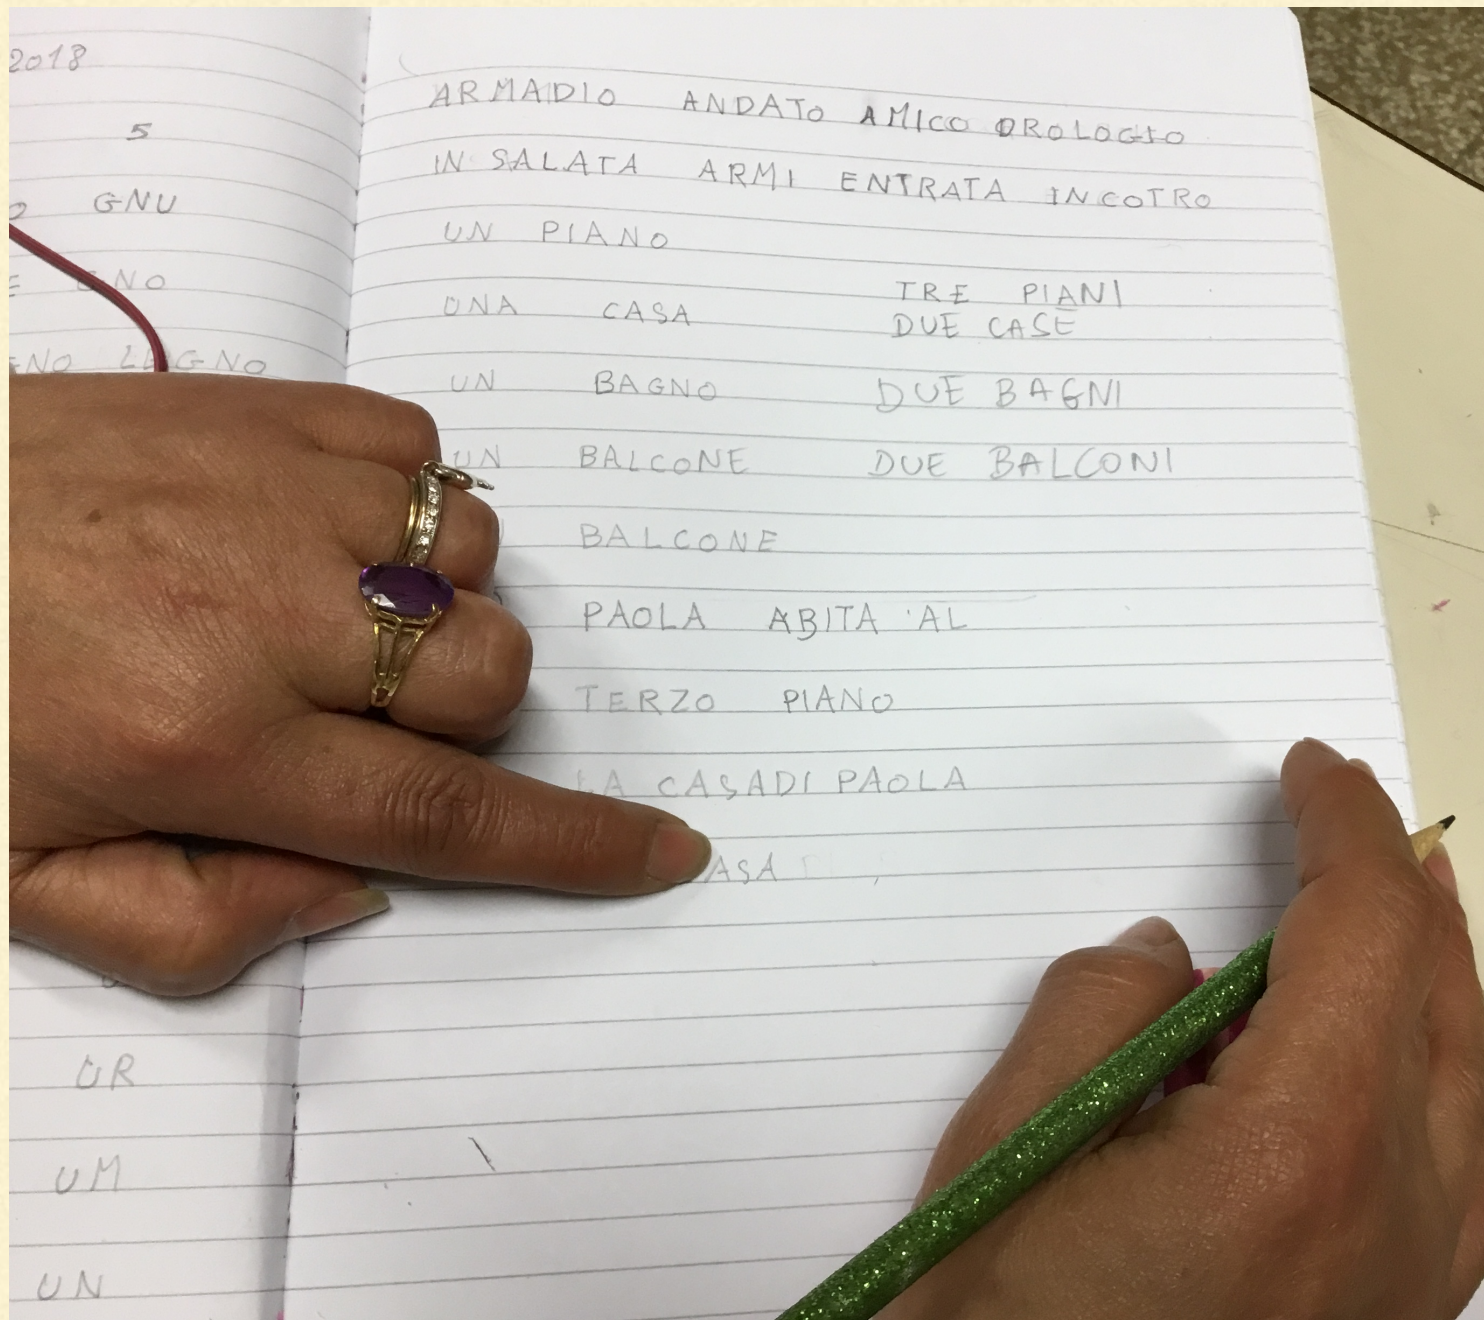 2018
5
GNU
GNO
LEGNO
UR
UM
UN
ARMADIO ANDATO AMICO OROLOGIO
IN SALATA ARMI ENTRATA INCOTRO
UN PIANO TRE PIANI
UNA CASA DUE CASE
UN BAGNO DUE BAGNI
UN BALCONE DUE BALCONI
BALCONE
PAOLA ABITA AL
TERZO PIANO
LA CASADI PAOLA
ASA